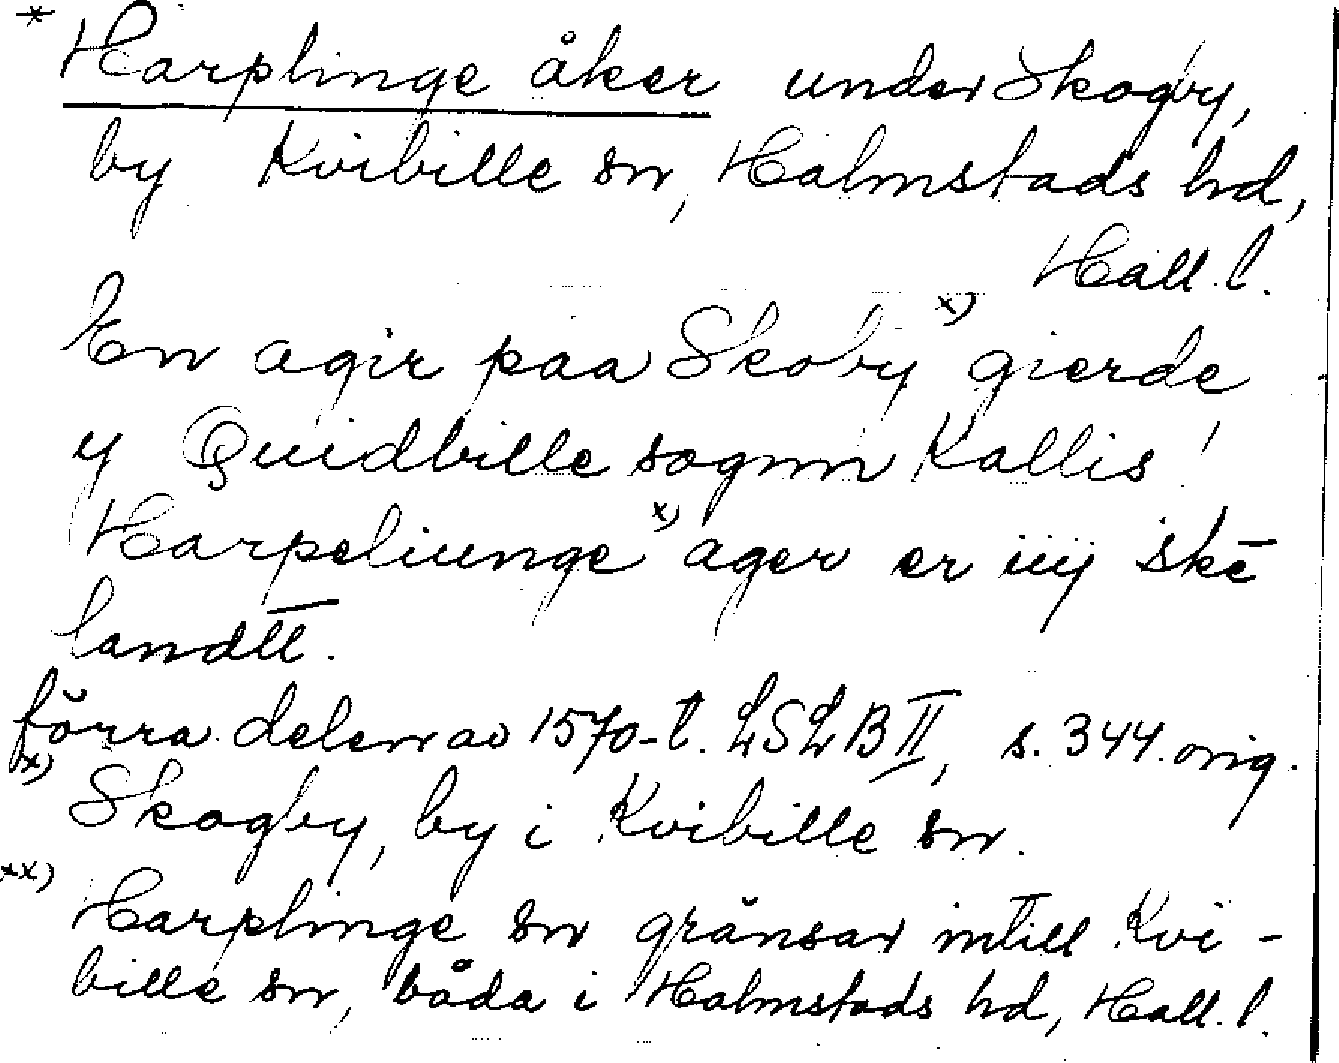 * Harplinge åker under Skogby,
by Kvibille sn, Halmstads hd,
Hall. l.
En agir paa Skoby x) gierde
y Quidbille sognn Kallis!
Harpeliunge x) ager er iiij skē
landtt.
förra delen av 1570-t. LSLB II, s. 344. orig.
x) Skogby, by i Kvibille sn.
xx) Harplinge sn gränsar intill Kvi-
bille sn, båda i Halmstads hd, Hall. l.